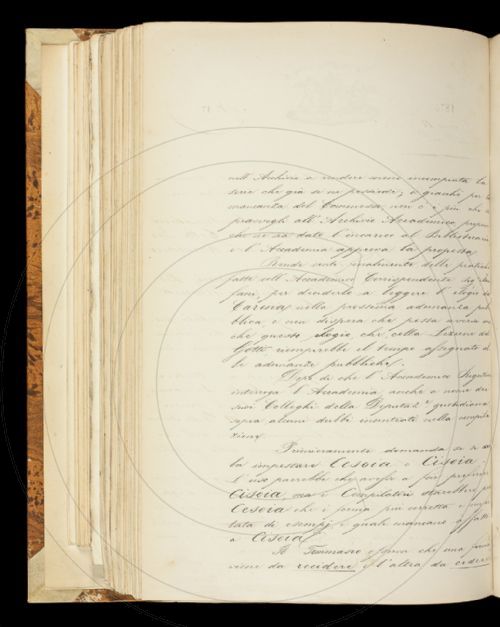 nell' Archivio a rendere meno incompiuta la
serie che già se ne possiede; e giacché per la
mancanza del Commesso non c'è più che
all' Archivio Accademico
che ne sia dato l'incarico al Bibliotecario
e l'Accademia approva la proposta
Rende conto finalmente delle pratiche
fatte coll' Accademico Corrispondente
fani per condurlo a leggere l'elogio del
Carena nella prossima adunanza pub
blica e non dispera che possa aversi
che questo elogio, che, colla Lezione del
Gotti, riempirebbe il tempo assegnato al
le adunanze pubbliche.
Dopo di che l'Accademico
interroga l'Accademia anche a nome dei
suoi Colleghi della Deputaz.e quotidiana
sopra alcuni dubbi incontrati nella compila
zione.
Primieramente domanda se si
ba impostare Cesoia o Cisoia.
L'uso parrebbe che avesse a far preferire
Cisoia, ma i Compilatori starebbero per
Cesoia che è forma più corretta e
tata di esempj, i quali mancano affatto
a Cisoia.
Il Tommaseo osserva che una forma
viene da recidere e l'altra da